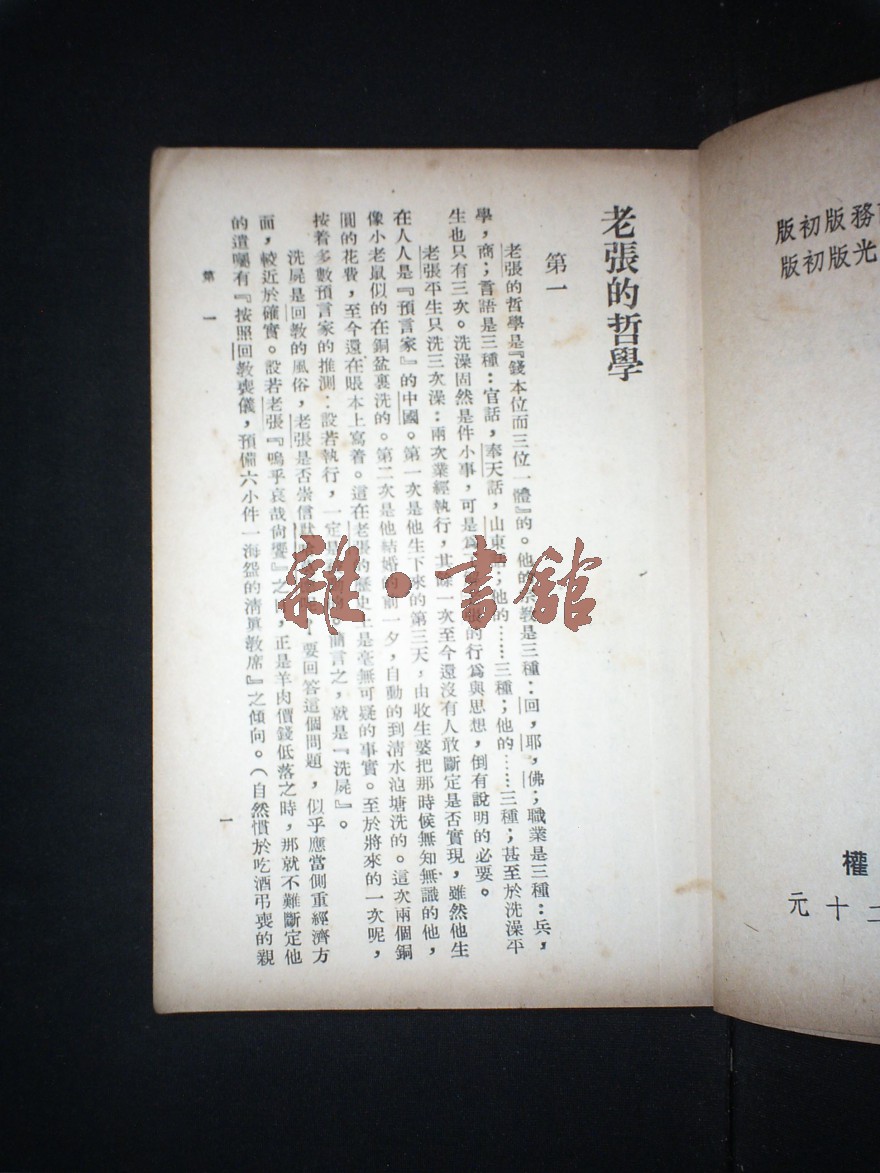 老張的哲學
第一
老張的哲學是『錢本位而三位一體』的。他的教是三種：回，耶，佛；職業是三種：兵，
學，商；言語是三種：官話，奉天話，山東；他的……三種；他的……三種；甚至於洗澡平
生也只有三次。洗澡固然是件小事，可是爲的行爲與思想，倒有說明的必要。
老張平生只洗三次澡：兩次業經執行，其一次至今還沒有人敢斷定是否實現，雖然他生
在人人是『預言家』的中國。第一次是他生下來的第三天，由收生婆把那時候無知無識的他，
像小老鼠似的在銅盆裏洗的。第二次是他結婚的前一夕，自動的到清水池塘洗的。這次兩個銅
圓的花費，至今還在賬本上寫着。這在老張的歷史上是毫無可疑的事實。至於將來的一次呢，
按着多數預言家的推測：設若執行，一定是簡言之，就是『洗屍』。
洗屍是回教的風俗，老張是否崇信要回答這個問題，似乎應當側重經濟方
面，較近於確實。設若老張『嗚乎哀哉尙饗』之正是羊肉價錢低落之時，那就不難斷定他
的遺囑有『按照回教喪儀，預備六小件一海盌的清眞教席』之傾向。（自然慣於吃酒弔喪的親
第一
一
雜・書館
務版初版
光版初版
權
十元